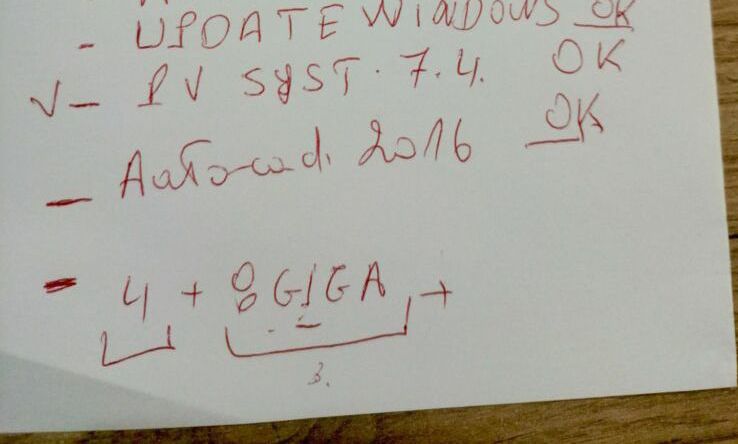 - UPDATE WINDOWS OK
√ - PV SYST. 7.4. OK
- Autocad. 2016 OK
- 4 + 8 GIGA +
3.